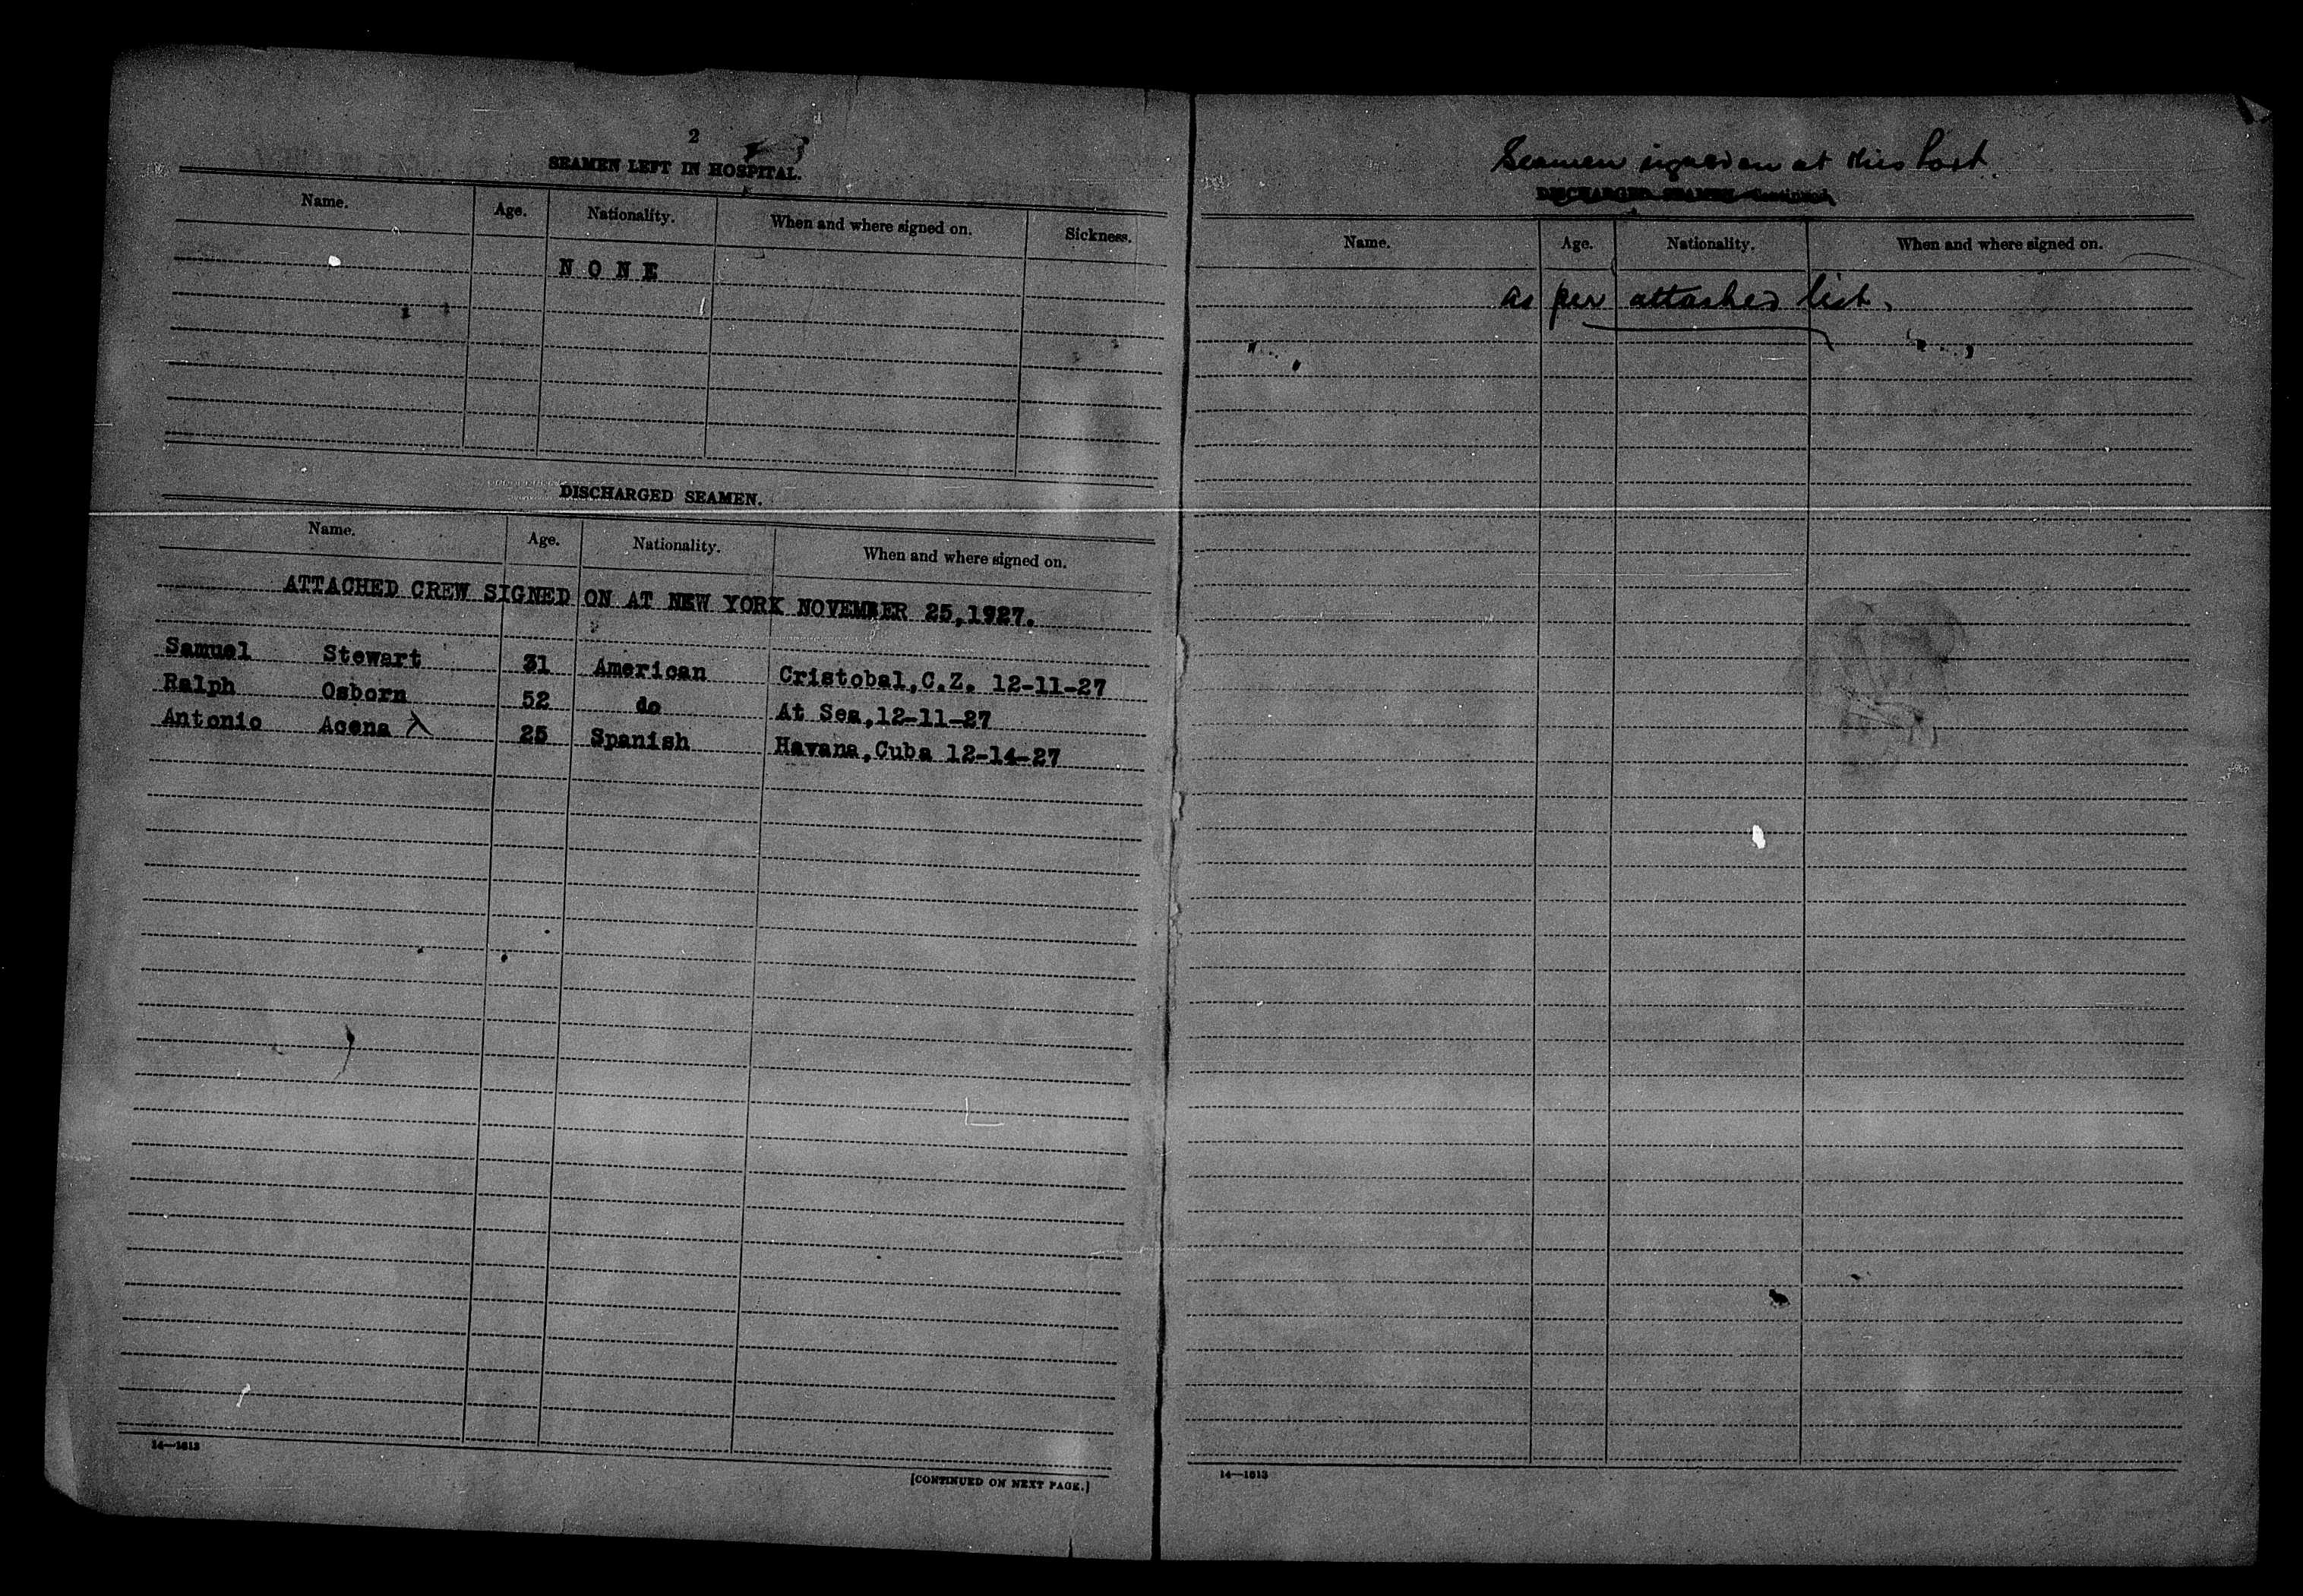 2
SEAMEN LEFT IN HOSPITAL.
Name. Age. Nationality. When and where signed on. Sickness.
N O N E
DISCHARGED SEAMEN.
Name. Age. Nationality. When and where signed on.
ATTACHED CREW SIGNED ON AT NEW YORK NOVEMBER 25,1927.
Samuel Stewart 31 American Cristobal,C.Z. 12-11-27
Ralph Osborn 52 do At Sea,12-11-27
Antonio Acena 25 Spanish Havana,Cuba 12-14-27
14—1613
[CONTINUED ON NEXT PAGE.]
Seamen signed on at this Port.
DISCHARGED SEAMEN—Continued.
Name. Age. Nationality. When and where signed on.
as per attached list.
14—1613